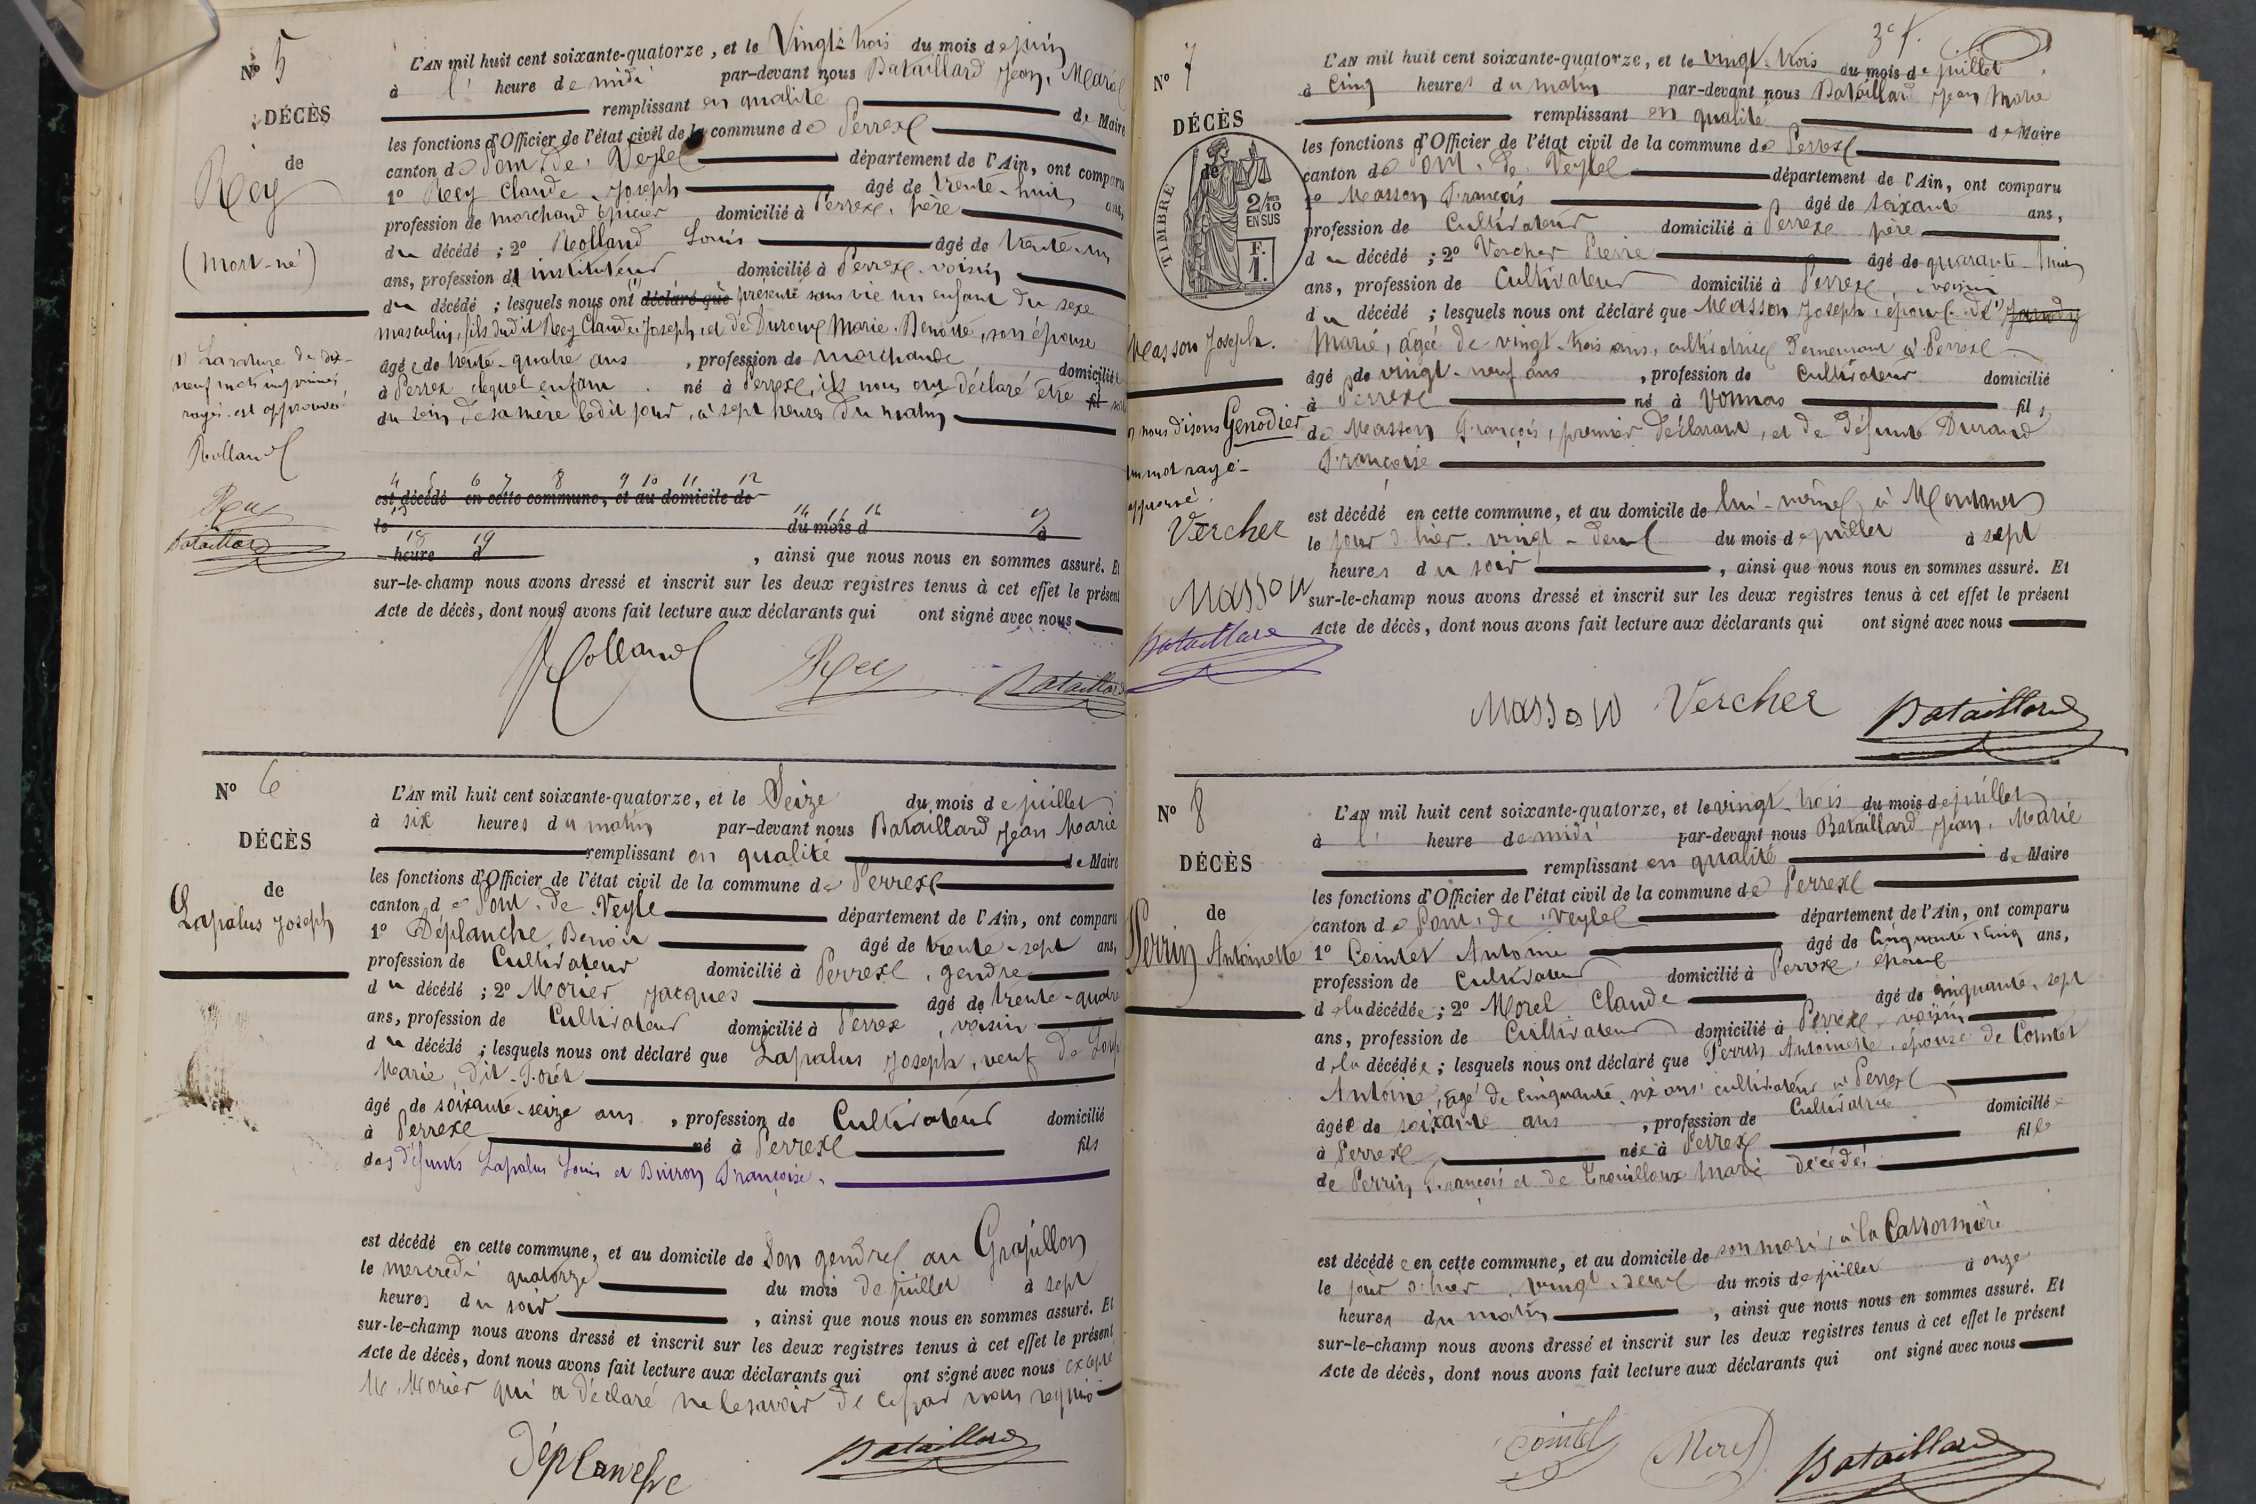 N° 5
DÉCÈS
de
Rey
(mort-né)
(1) La rature de dix-
neuf mots imprimés
rayés est approuvée
Rolland
Rey
Bataillard
L'AN mil huit cent soixante-quatorze, et le Vingt-trois du mois de juin
à l' heure de midi par-devant nous Bataillard Jean, Marie
remplissant en qualité de Maire
les fonctions d'Officier de l'état civil de la commune de Perrex
canton de Pont-de-Veyle département de l'Ain, ont comparu
1° Rey Claude Joseph âgé de trente-huit ans,
profession de marchand épicier domicilié à Perrex, père
du décédé ; 2° Rolland Louis âgé de trente-un
ans, profession d' instituteur domicilié à Perrex voisin
du décédé ; lesquels nous ont (1) déclaré que présenté sans vie un enfant du sexe
masculin, fils dudit Rey Claude Joseph et de Duroux Marie Benoite, son épouse
âgée de trente-quatre ans, profession de marchande domiciliée
à Perrex lequel enfant né à Perrex, ils nous ont déclaré être fil sorti
du sein de sa mère ledit jour, à sept heures du matin
4 5 6 7 8 9 10 11 12
est décédé en cette commune, et au domicile de
13 14 15 16 17
le du mois d à
18 19
heure d , ainsi que nous nous en sommes assuré. Et
sur-le-champ nous avons dressé et inscrit sur les deux registres tenus à cet effet le présent
Acte de décès, dont nous avons fait lecture aux déclarants qui ont signé avec nous
Rolland Rey Bataillard
N° 6
DÉCÈS
de
Lapalus Joseph
L'AN mil huit cent soixante-quatorze, et le Seize du mois de juillet
à six heures du matin par-devant nous Bataillard Jean Marie
remplissant en qualité de Maire
les fonctions d'Officier de l'état civil de la commune de Perrex
canton de Pont-de-Veyle département de l'Ain, ont comparu
1° Déplanche Benoit âgé de trente-sept ans,
profession de Cultivateur domicilié à Perrex, gendre
du décédé ; 2° Morier Jacques âgé de trente-quatre
ans, profession de Cultivateur domicilié à Perrex, voisin
du décédé ; lesquels nous ont déclaré que Lapalus Joseph, veuf de
Marie, dit
âgé de soixante-seize ans, profession de Cultivateur domicilié
à Perrex né à Perrex fils
des défunts Lapalus Louis et Buiron Françoise.
est décédé en cette commune, et au domicile de Son gendre au Grapillon
le mercredi quatorze du mois de juillet à sept
heures du soir , ainsi que nous nous en sommes assuré. Et
sur-le-champ nous avons dressé et inscrit sur les deux registres tenus à cet effet le présent
Acte de décès, dont nous avons fait lecture aux déclarants qui ont signé avec nous excepté
M. Morier qui a déclaré ne le savoir de ce par nous requis
Déplanche Bataillard
3e f.
N° 7
DÉCÈS
de
TIMBRE
2/10 EN SUS
F. 1.
Masson Joseph.
(1) nous disons Genodier
un mot rayé
approuvé.
Vercher
Masson
Bataillard
L'AN mil huit cent soixante-quatorze, et le vingt-trois du mois de juillet
à Cinq heures du matin par-devant nous Bataillard Jean Marie
remplissant en qualité de Maire
les fonctions d'Officier de l'état civil de la commune de Perrex
canton de Pont-de-Veyle département de l'Ain, ont comparu
1° Masson François âgé de soixante ans,
profession de Cultivateur domicilié à Perrex père
du décédé ; 2° Vercher Pierre âgé de quarante-huit
ans, profession de Cultivateur domicilié à Perrex, voisin
du décédé ; lesquels nous ont déclaré que Masson Joseph, époux de (1)
Marie, âgée de vingt-trois ans, cultivatrice demeurant à Perrex
âgé de vingt-neuf ans, profession de Cultivateur domicilié
à Perrex né à Vonnas fils
de Masson François, premier déclarant, et de défunte Durand
Françoise
est décédé en cette commune, et au domicile de lui-même, à
le jour d'hier vingt-deux du mois de juillet à sept
heures du soir , ainsi que nous nous en sommes assuré. Et
sur-le-champ nous avons dressé et inscrit sur les deux registres tenus à cet effet le présent
Acte de décès, dont nous avons fait lecture aux déclarants qui ont signé avec nous
Masson Vercher Bataillard
N° 8
DÉCÈS
de
Perrin Antoinette
L'AN mil huit cent soixante-quatorze, et le vingt-trois du mois de juillet
à l' heure de midi par-devant nous Bataillard Jean, Marie
remplissant en qualité de Maire
les fonctions d'Officier de l'état civil de la commune de Perrex
canton de Pont-de-Veyle département de l'Ain, ont comparu
1° Cointet Antoine âgé de Cinquante-cinq ans,
profession de Cultivateur domicilié à Perrex, époux
de la décédée ; 2° Morel Claude âgé de cinquante-sept
ans, profession de Cultivateur domicilié à Perrex, voisin
de la décédée ; lesquels nous ont déclaré que Perrin Antoinette, épouse de Cointet
Antoine, âgé de cinquante-six ans, cultivateur à Perrex
âgée de soixante ans, profession de Cultivatrice domiciliée
à Perrex née à Perrex fille
de Perrin François et de Trouilloux Marie décédés
est décédée en cette commune, et au domicile de son mari, à la Cassonnière
le jour d'hier vingt-deux du mois de juillet à onze
heures du matin , ainsi que nous nous en sommes assuré. Et
sur-le-champ nous avons dressé et inscrit sur les deux registres tenus à cet effet le présent
Acte de décès, dont nous avons fait lecture aux déclarants qui ont signé avec nous
Cointet Morel Bataillard